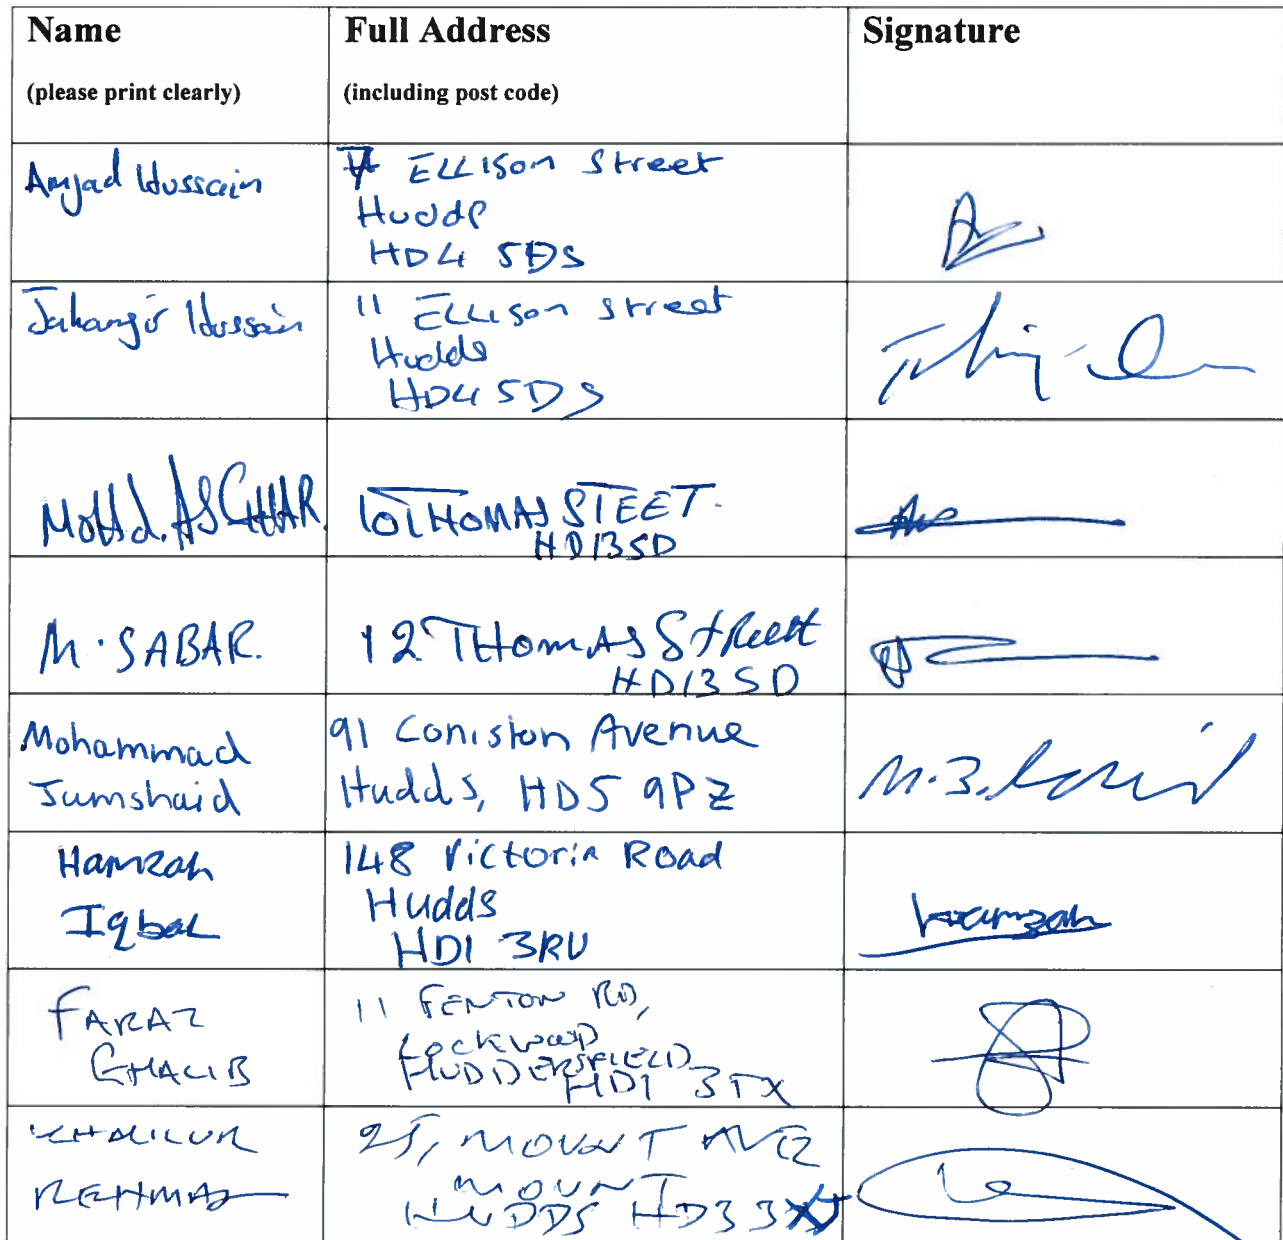 Name Full Address Signature
(please print clearly) (including post code)
Amjad Hussain
7 ELLISON Street
Hudds
HD4 5DS
Jahangir Hussain
11 ELLISON Street
Hudds
HD4 5DS
MOHd. ASGHAR.
101 THOMAS STEET.
HD13SD
M. SABAR.
12 THOMAS Street
HD13SD
Mohammad
Jumshaid
91 Coniston Avenue
Hudds, HD5 9PZ
Hamzah
Iqbal
148 Victoria Road
Hudds
HD1 3RU
Hamzah
FARAZ
GHALIB
11 FENTON RD,
LOCKWOOD
HUDDERSFIELD
HD1 3TX
KHALILUR
REHMAN
25, MOUNT AVE
MOUNT
HUDDS HD3 3XJ